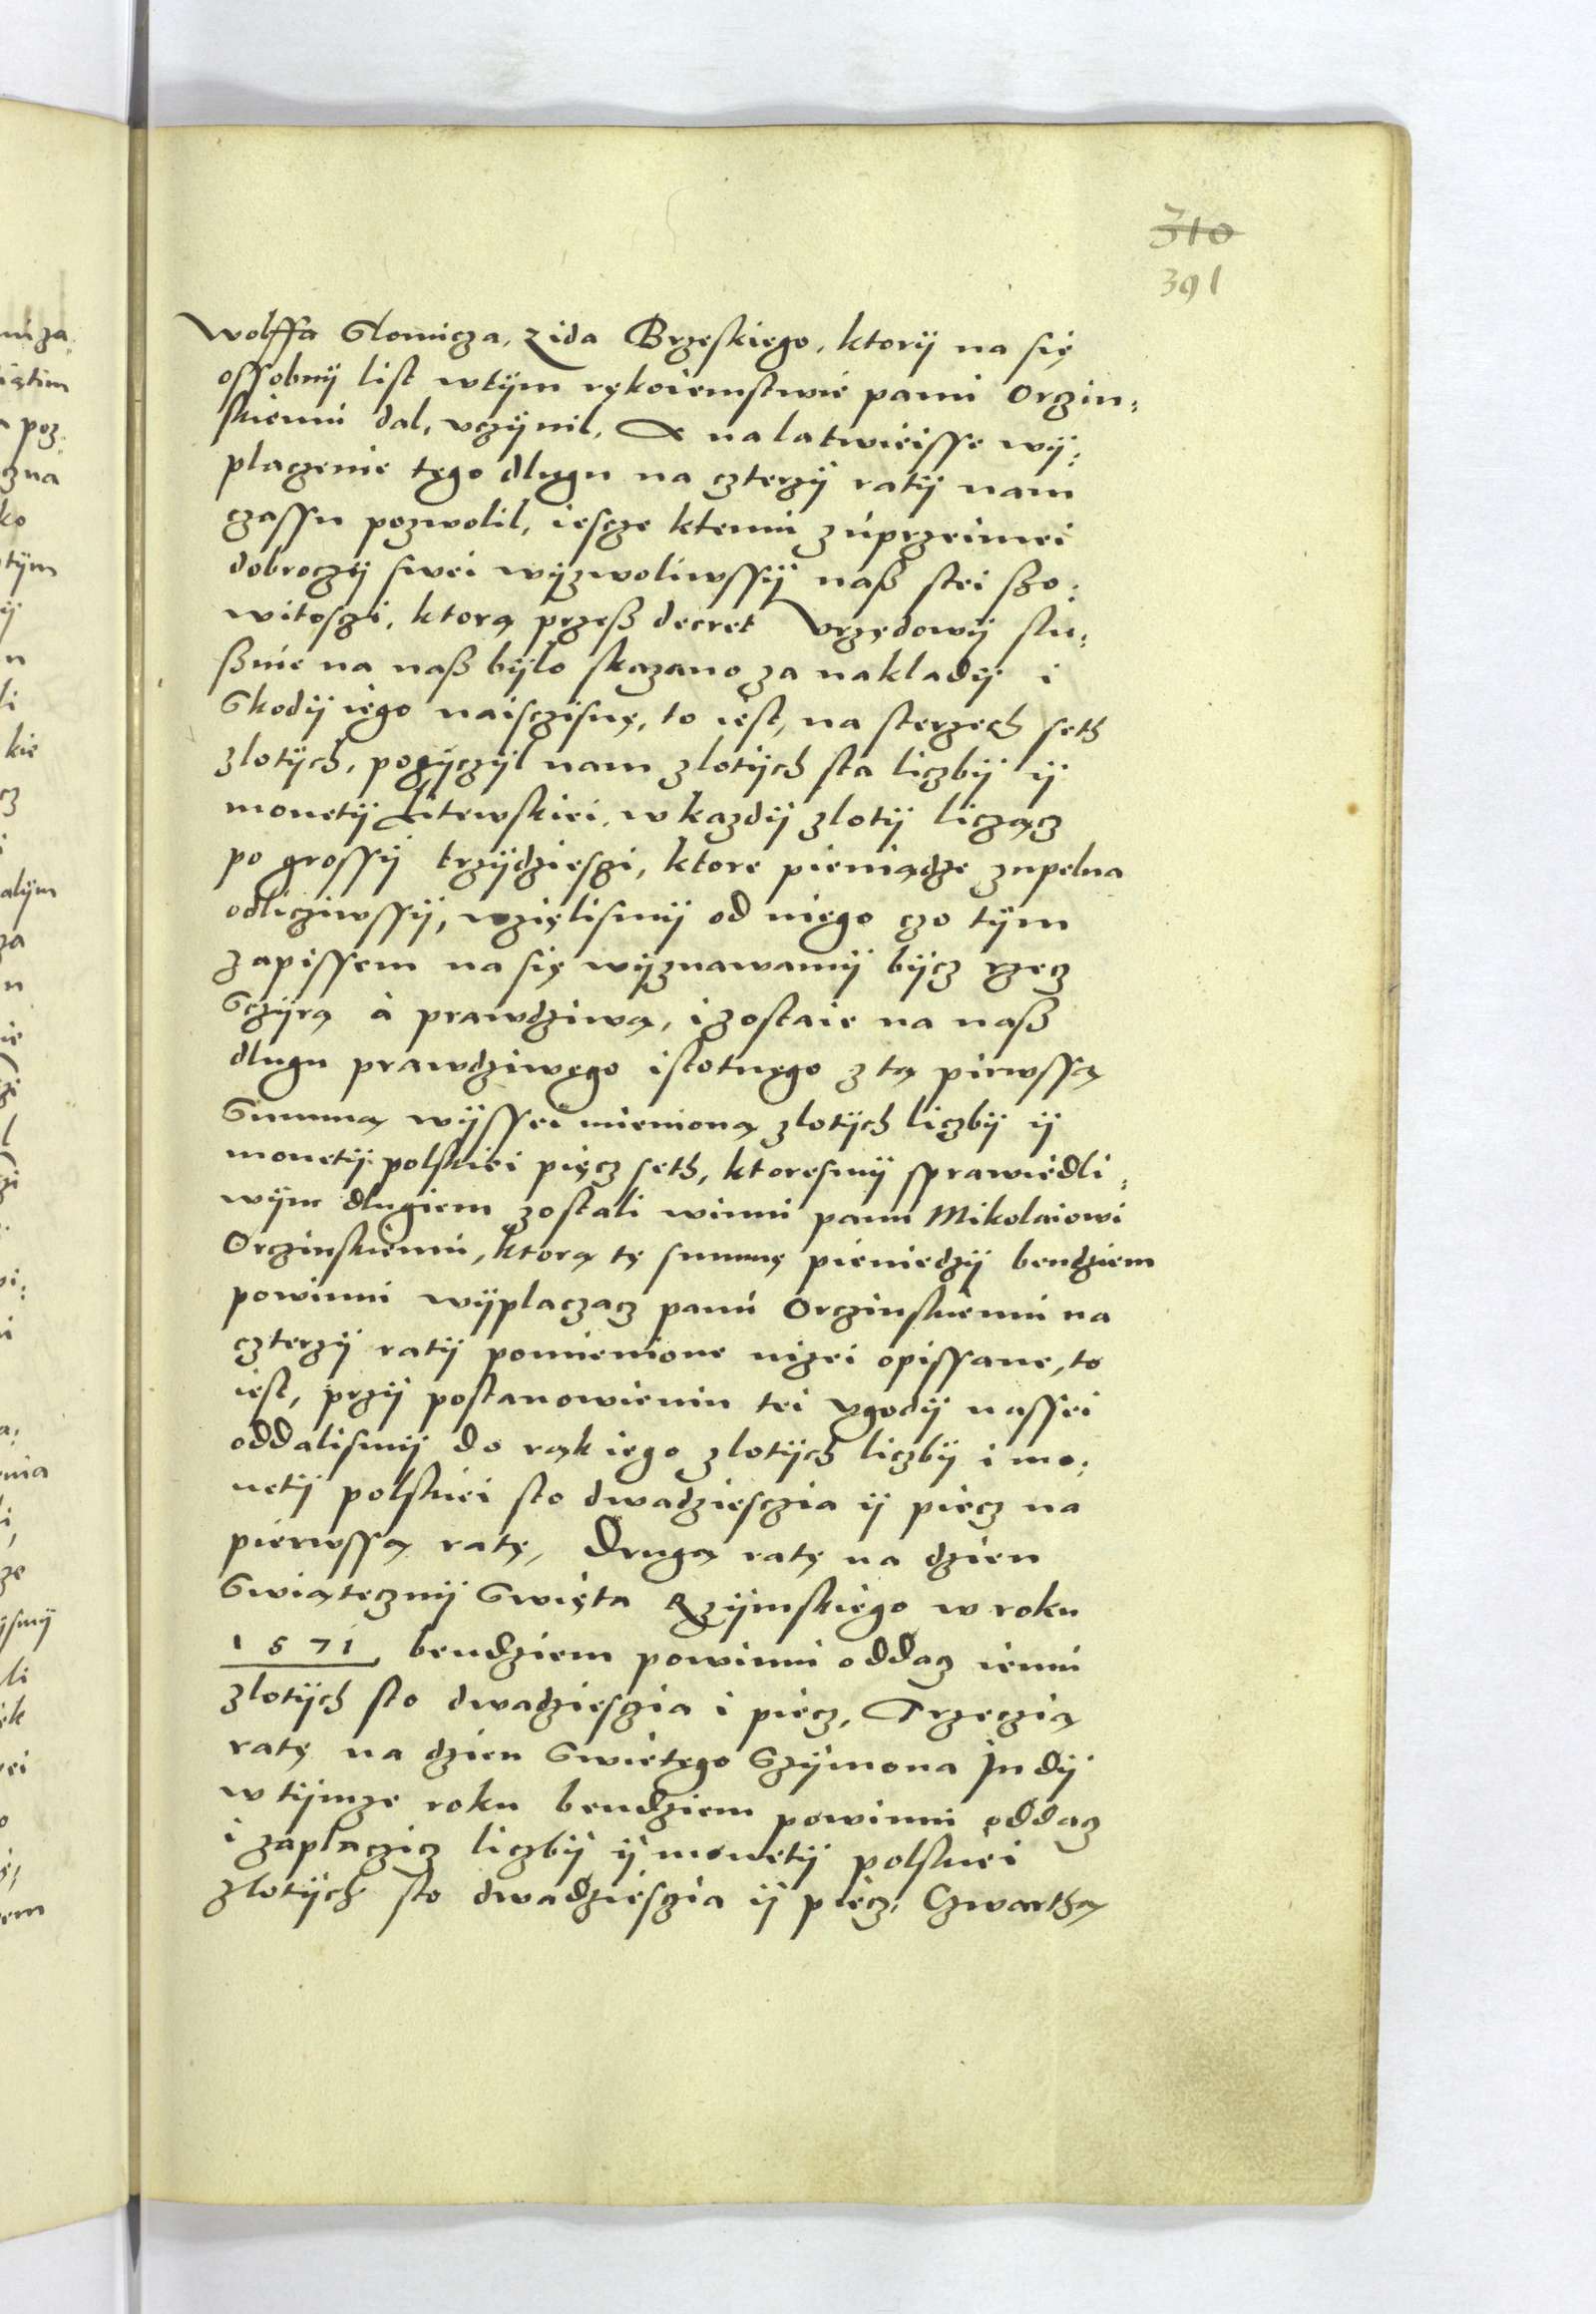 310
391
Wolffa Slomicza, Zida Brzeskiego, ktorÿ na się
ossobnÿ list wtÿm rękoiemstwie panu Orzin:
skiemu dal, vczÿnil, A na latwieisse wÿ:
placzenie tęgo dlugu na czterzÿ ratÿ nam
czassu pozwolil, iescze ktemu zuprzeimei
dobroczÿ swei wÿzwoliwssÿ naß stei szo:
witosczi, ktorą przeß decret vrzędowÿ slu:
ßnie na naß bÿlo skazano za nakladÿ i
Skodÿ iego naisczisnę, to iest, na sterzech seth
zlotÿch, pozÿczÿl nam zlotÿch sta liczbÿ ÿ
monetÿ Litewskiei, w kazdÿ zlotÿ licząc
po grossÿ trzÿdziesczi, ktore pieniądze zupelna
odlicziwssÿ, wzięlismÿ od niego czo tÿm
zapissem na się wÿznawamÿ bÿcz rzecz
Sczÿrą à prawdziwą, i zostaie na naß
dlugu prawdziwęgo istotnęgo z tą pirwssą
Summą wÿssei mienioną zlotÿch liczbÿ ÿ
monetÿ polskiei pięcz seth, ktoresmÿ sprawiedli:
wÿm dlugiem zostali winni panu Mikolaiowi
Orczinskiemu, ktorą tę summę pieniedzÿ bendziem
powinni wÿplaczacz panu Orczinskiemu na
czterzÿ ratÿ pomienione nizei opissane, to
iest, przÿ postanowieniu tei vgodÿ nassei
oddalismÿ do rąk iego zlotÿch liczbÿ i mo:
netÿ polskiei sto dwadziesczia ÿ piecz na
pierwssą ratę, Drugą ratę na dzien
Swiątecznÿ Swięta Rzÿmskiego w roku
1571 bendziem powinni oddacz iemu
zlotÿch sto dwadziesczia i piecz, Trzeczią
ratę na dzien Swietęgo Szÿmona Judÿ
w tÿmze roku bendziem powinni oddacz
i zaplaczicz liczbÿ ÿ monetÿ polskiei
zlotÿch sto dwadziesczia ÿ piecz, Czwarthą